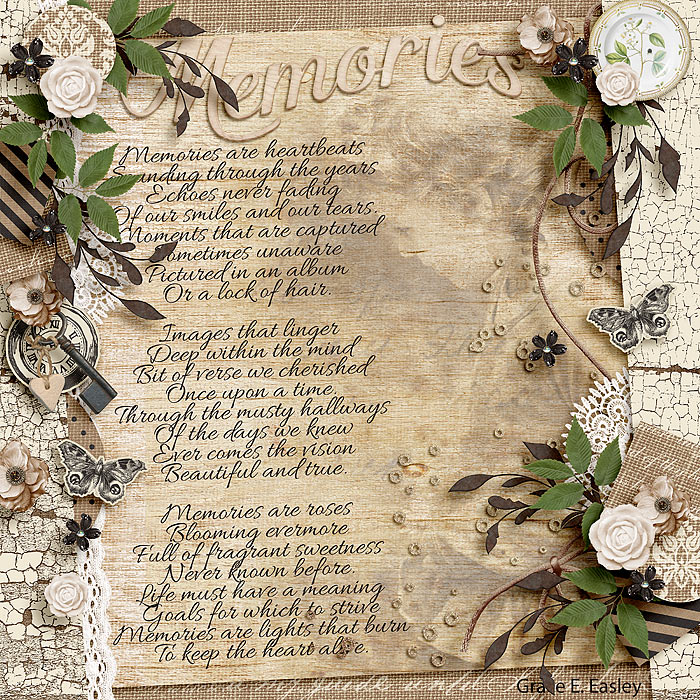 Memories
Memories are heartbeats
Sounding through the years
Echoes never fading
Of our smiles and our tears.
Moments that are captured
Sometimes unaware
Pictured in an album
Or a lock of hair.
Images that linger
Deep within the mind
Bit of verse we cherished
Once upon a time.
Through the musty hallways
Of the days we knew
Ever comes the vision
Beautiful and true.
Memories are roses
Blooming evermore
Full of fragrant sweetness
Never known before.
Life must have a meaning
Goals for which to strive
Memories are lights that burn
To keep the heart alive.
Grace E. Easley